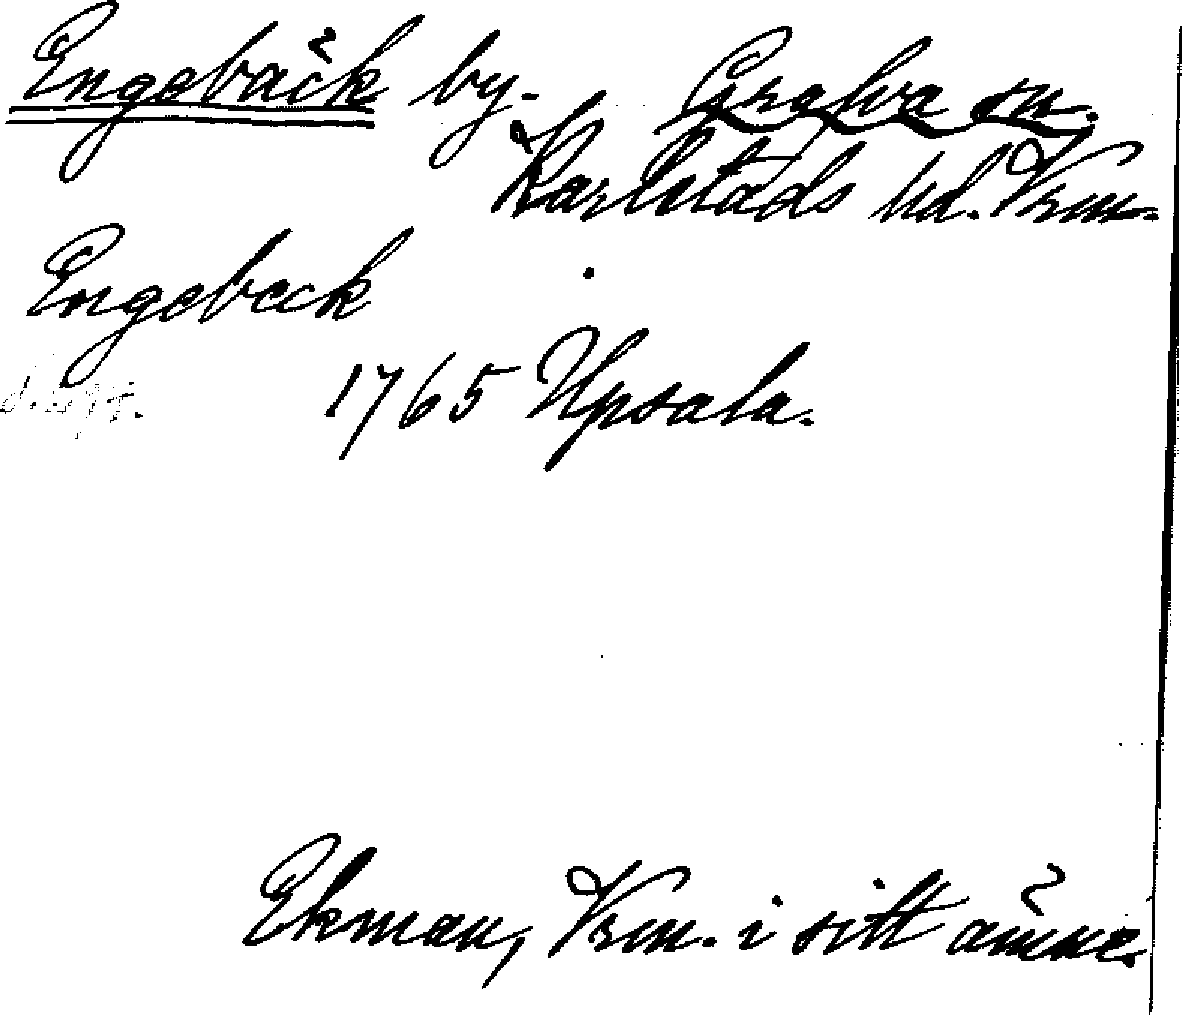 Engebäck by. Grafva sn.
Karlstads hd. Vrm.
Engebeck
1765 Upsala.
Ekman, Vrm. i sitt ämne.